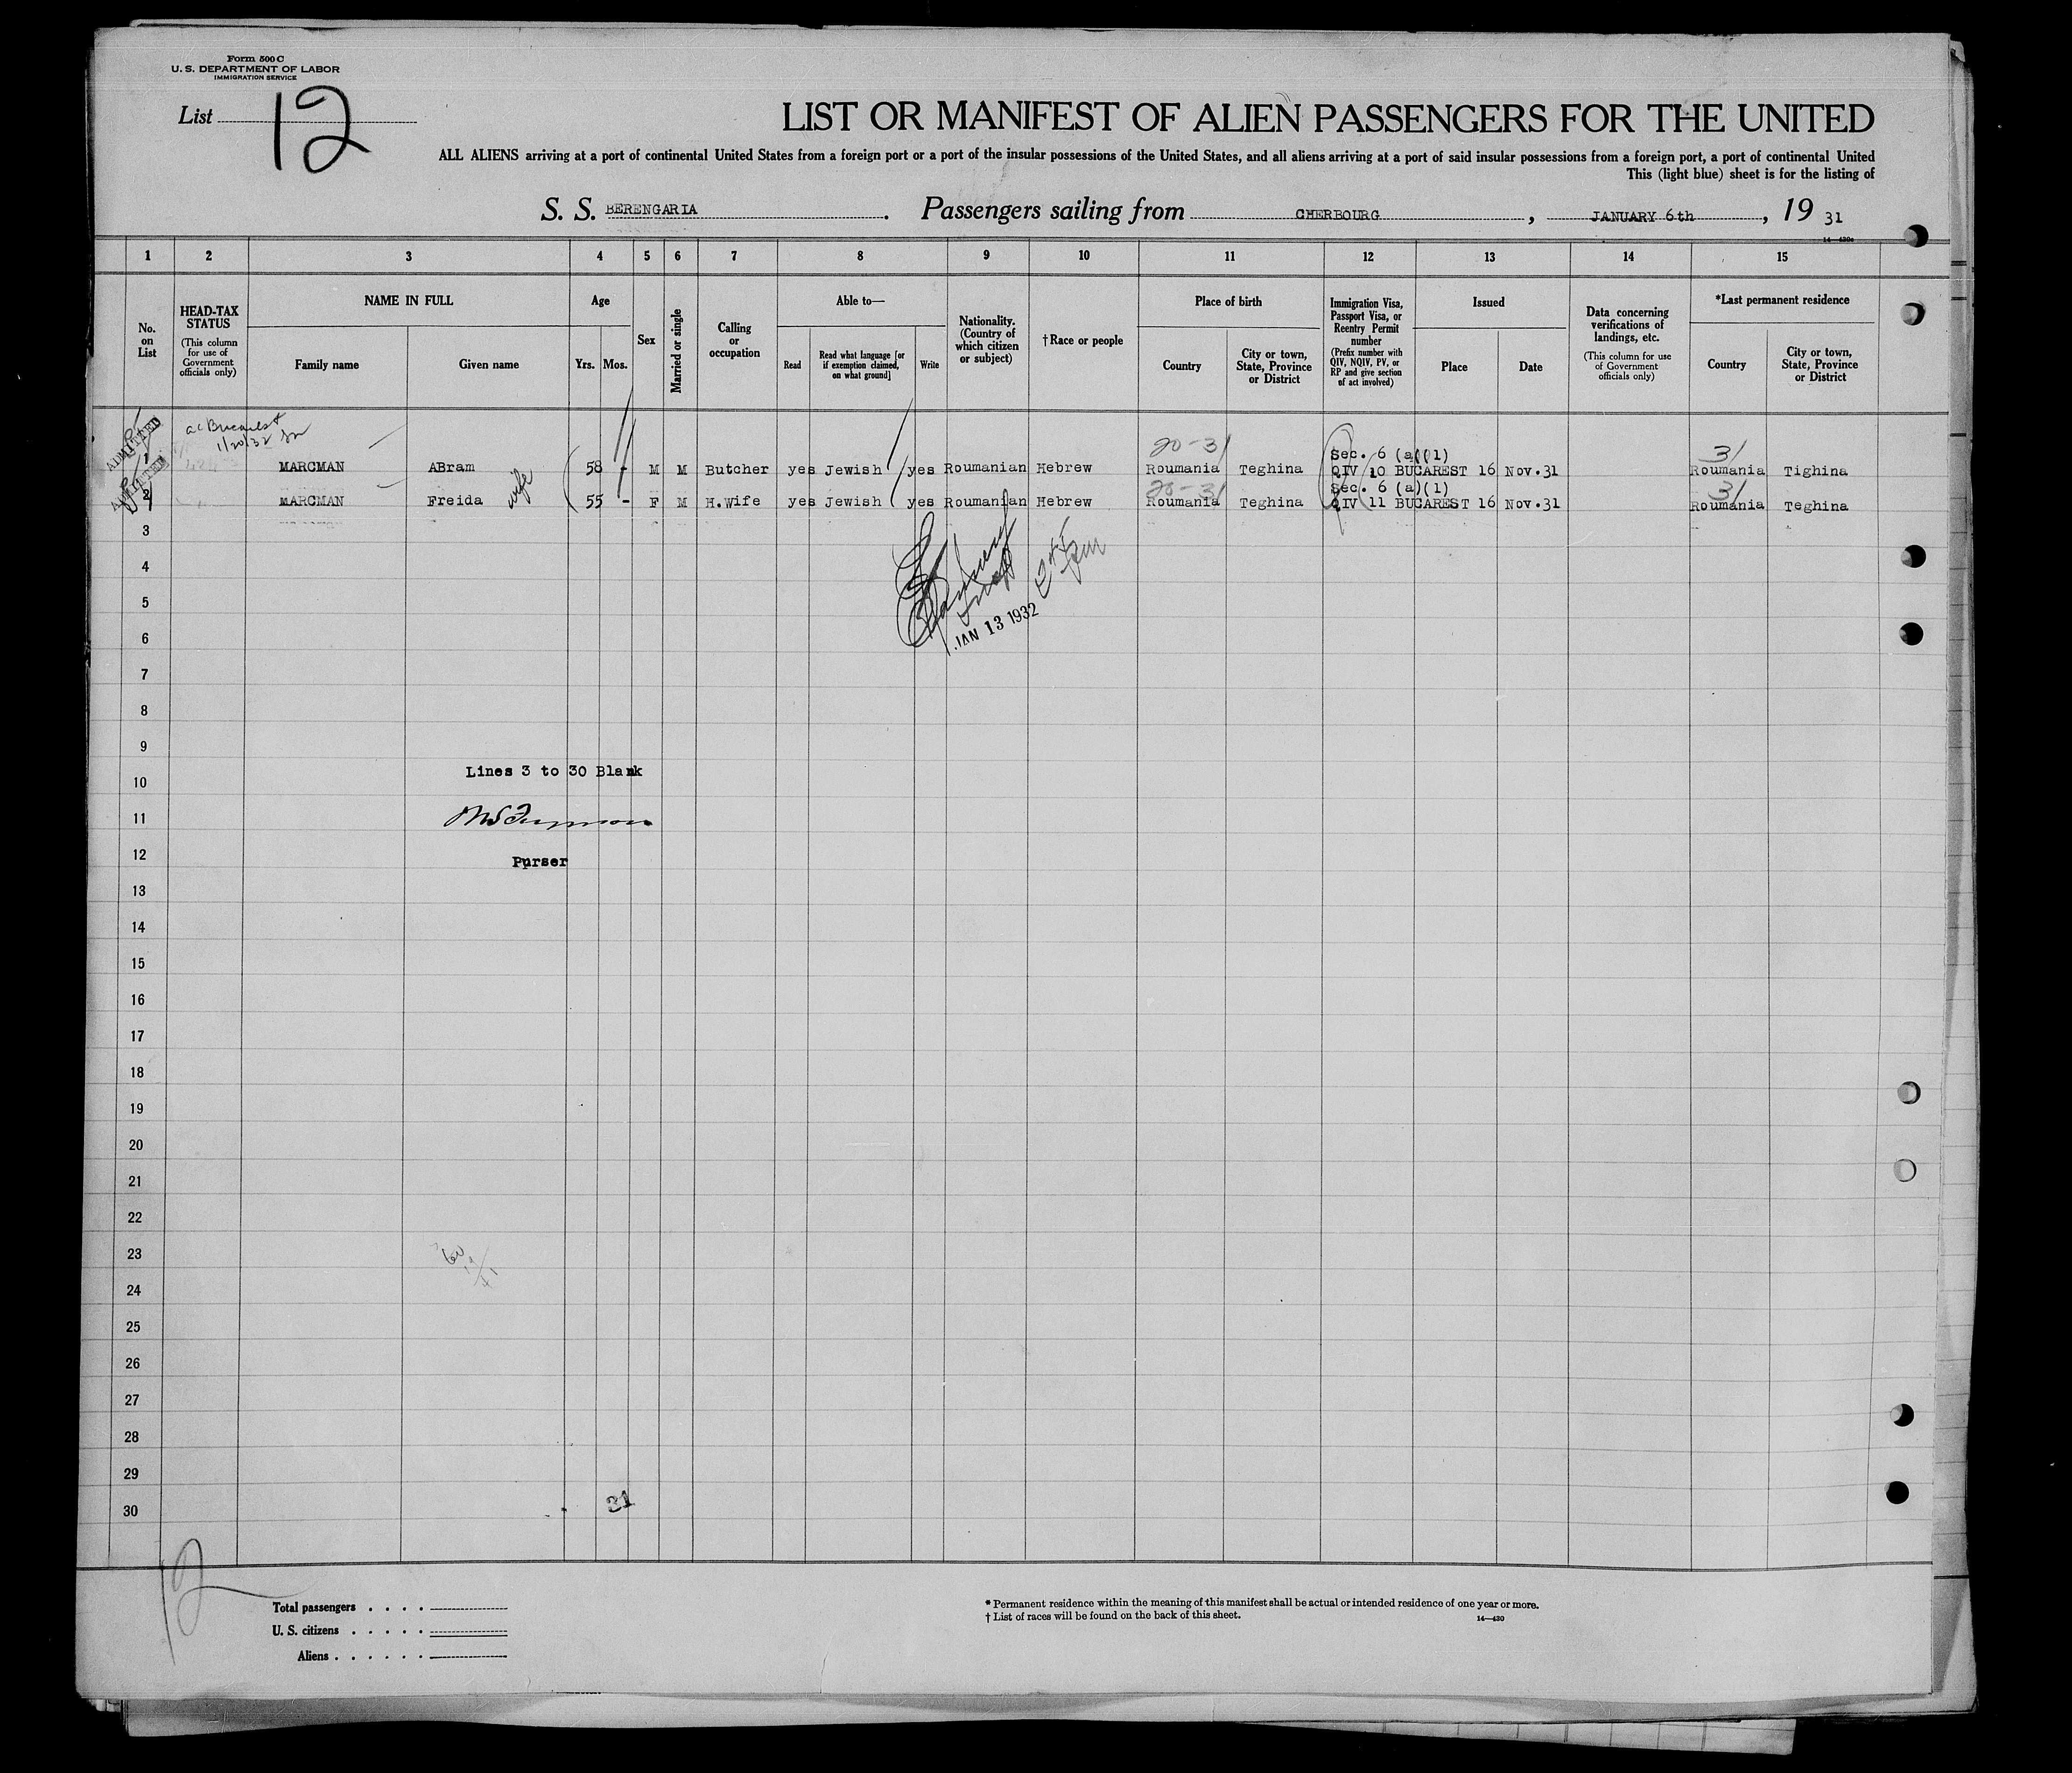 Form 500 C
U. S. DEPARTMENT OF LABOR
IMMIGRATION SERVICE
List 12
LIST OR MANIFEST OF ALIEN PASSENGERS FOR THE UNITED
ALL ALIENS arriving at a port of continental United States from a foreign port or a port of the insular possessions of the United States, and all aliens arriving at a port of said insular possessions from a foreign port, a port of continental United
This (light blue) sheet is for the listing of
S. S. BERENGARIA. Passengers sailing from CHERBOURG, JANUARY 6th, 19 31
14—430a
1 2 3 4 5 6 7 8 9 10 11 12 13 14 15
No. on List
HEAD-TAX STATUS
(This column for use of Government officials only)
NAME IN FULL
Family name
Given name
Age
Yrs. Mos.
Sex
Married or single
Calling or occupation
Able to—
Read
Read what language [or if exemption claimed, on what ground]
Write
Nationality. (Country of which citizen or subject)
†Race or people
Place of birth
Country
City or town, State, Province or District
Immigration Visa, Passport Visa, or Reentry Permit number
(Prefix number with QIV, NQIV, PV, or RP and give section of act involved)
Issued
Place
Date
Data concerning verifications of landings, etc.
(This column for use of Government officials only)
*Last permanent residence
Country
City or town, State, Province or District
Bucarest
1/20/32
20-31
Sec. 6 (a)(1)
31
ADMITTED 1 MARCMAN ABram 58 - M M Butcher yes Jewish yes Roumanian Hebrew Roumania Teghina QIV 10 BUCAREST 16 Nov.31 Roumania Tighina
20-31
Sec. 6 (a)(1)
31
ADMITTED 2 MARCMAN Freida wife 55 - F M H.Wife yes Jewish yes Roumanian Hebrew Roumania Teghina QIV 11 BUCAREST 16 Nov.31 Roumania Teghina
3
4
5
6
JAN 13 1932
7
8
9
Lines 3 to 30 Blank
10
11
12
Purser
13
14
15
16
17
18
19
20
21
22
23
24
25
26
27
28
29
30
31
12
Total passengers . . . .
U. S. citizens . . . . .
Aliens . . . . . .
* Permanent residence within the meaning of this manifest shall be actual or intended residence of one year or more.
† List of races will be found on the back of this sheet.
14—430